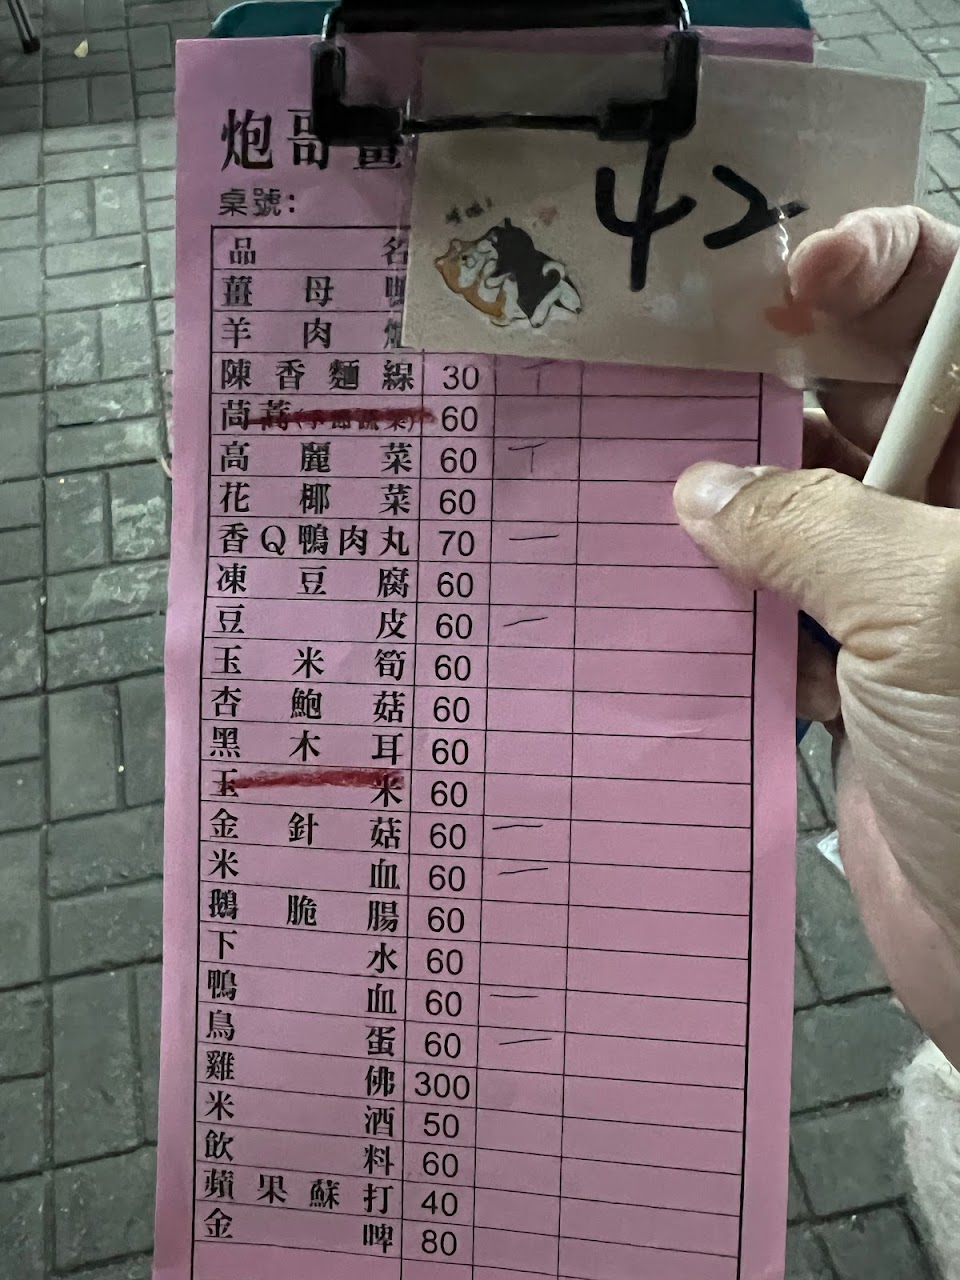 炮哥薑
42
桌號：
品名
薑母鴨
羊肉爐
陳香麵線 30 丅
茼蒿(季節蔬菜) 60
高麗菜 60 丅
花椰菜 60
香Q鴨肉丸 70 一
凍豆腐 60
豆皮 60 一
玉米筍 60
杏鮑菇 60
黑木耳 60
玉米 60
金針菇 60 一
米血 60 一
鵝脆腸 60
下水 60
鴨血 60 一
鳥蛋 60 一
雞佛 300
米酒 50
飲料 60
蘋果蘇打 40
金啤 80